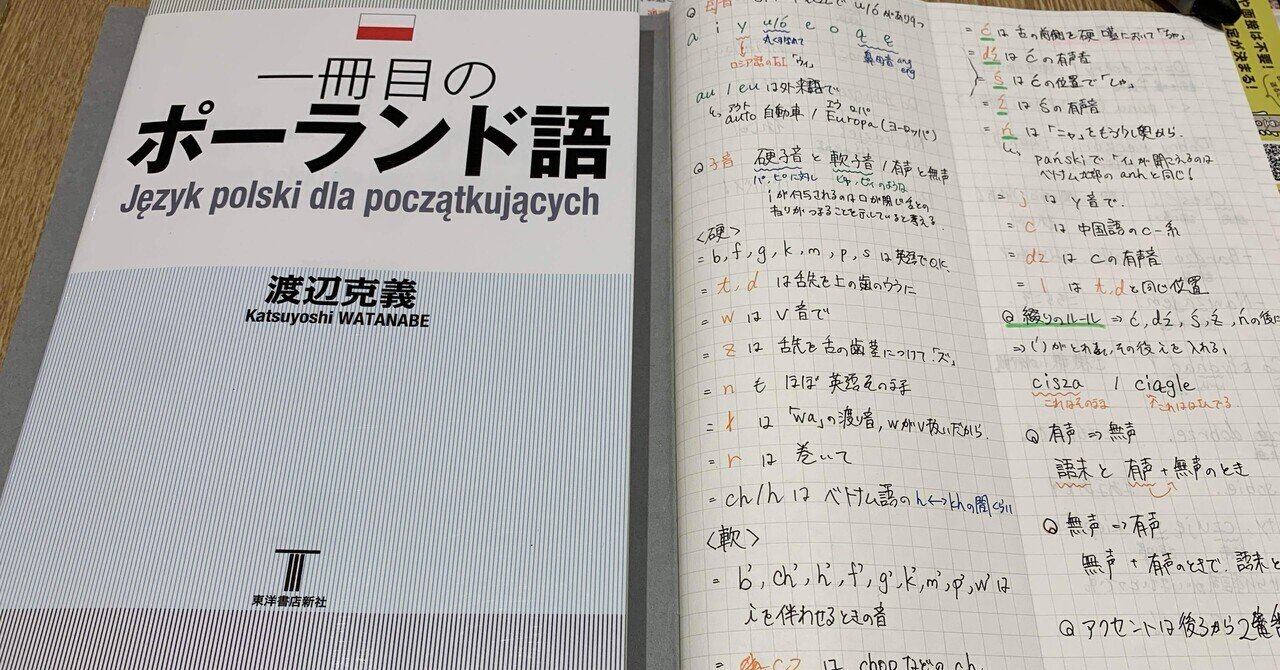 一冊目の
ポーランド語
Język polski dla początkujących
渡辺克義
Katsuyoshi WATANABE
東洋書店新社
Q 母音 u/óがあり9つ
a i y u/ó e o ą ę
ロシア語の 「ウィ」
鼻母音 ang eng
au / eu は外来語で
アウト エウロパ
auto 自動車 / Europa (ヨーロッパ)
Q 子音 硬子音 と 軟子音 / 有声と無声
パ、ピに対し ピャ、ピィのような
iが付与されるのは口が閉じ舌との
<硬>
= b, f, g, k, m, p, s は英語でO.K.
= t, d は舌先を上の歯のウラに
= w は V 音で
= z は 舌先を舌の歯茎につけて「ズ」
= n も ほぼ 英語そのまま
= ł は 「wa」の渡り音, wがv扱いだから.
= r は 巻いて
= ch/h は ベトナム語の h↔khの間くらい
<軟>
= b', ch', h', f', g', k', m', p', w' は
iを伴わせるときの音
= cz は chopなどの ch
= ć は舌の前側を硬口蓋において「ちゃ」
= dź は ćの有声音
= ś は ćの位置で「しゃ」
= ź は śの有声音
= ń は「ニャ」をもう少し奥から.
pańskiで「イ」が聞こえるのは
ベトナム北部の anhと同じ!
= j は Y音で.
= c は 中国語のc-系
= dz は cの有声音
= l は t, dと同じ位置
Q 綴りのルール ⇒ ć, dź, ś, ź, ńの後に
⇒ (´)がとれ, その後 iを入れる,
cisza / ciągle
これはそのまま
Q 有声 ⇒ 無声
語末 と 有声+無声のとき
Q 無声 ⇒ 有声
無声 + 有声のときで, 語末と
Q アクセントは後ろから2番